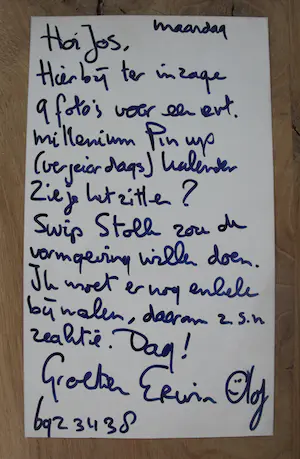 maandag
Hoi Jos,
Hierbij ter inzage
9 foto's voor een evt.
millenium Pin up
(verjaardags) kalender
Zie je het zitten?
Swip Stolk zou de
vormgeving willen doen.
Ik moet er nog enkele
bij maken, daarom z.s.m
reaktie. Dag!
Groeten Erwin Olaf
6923438